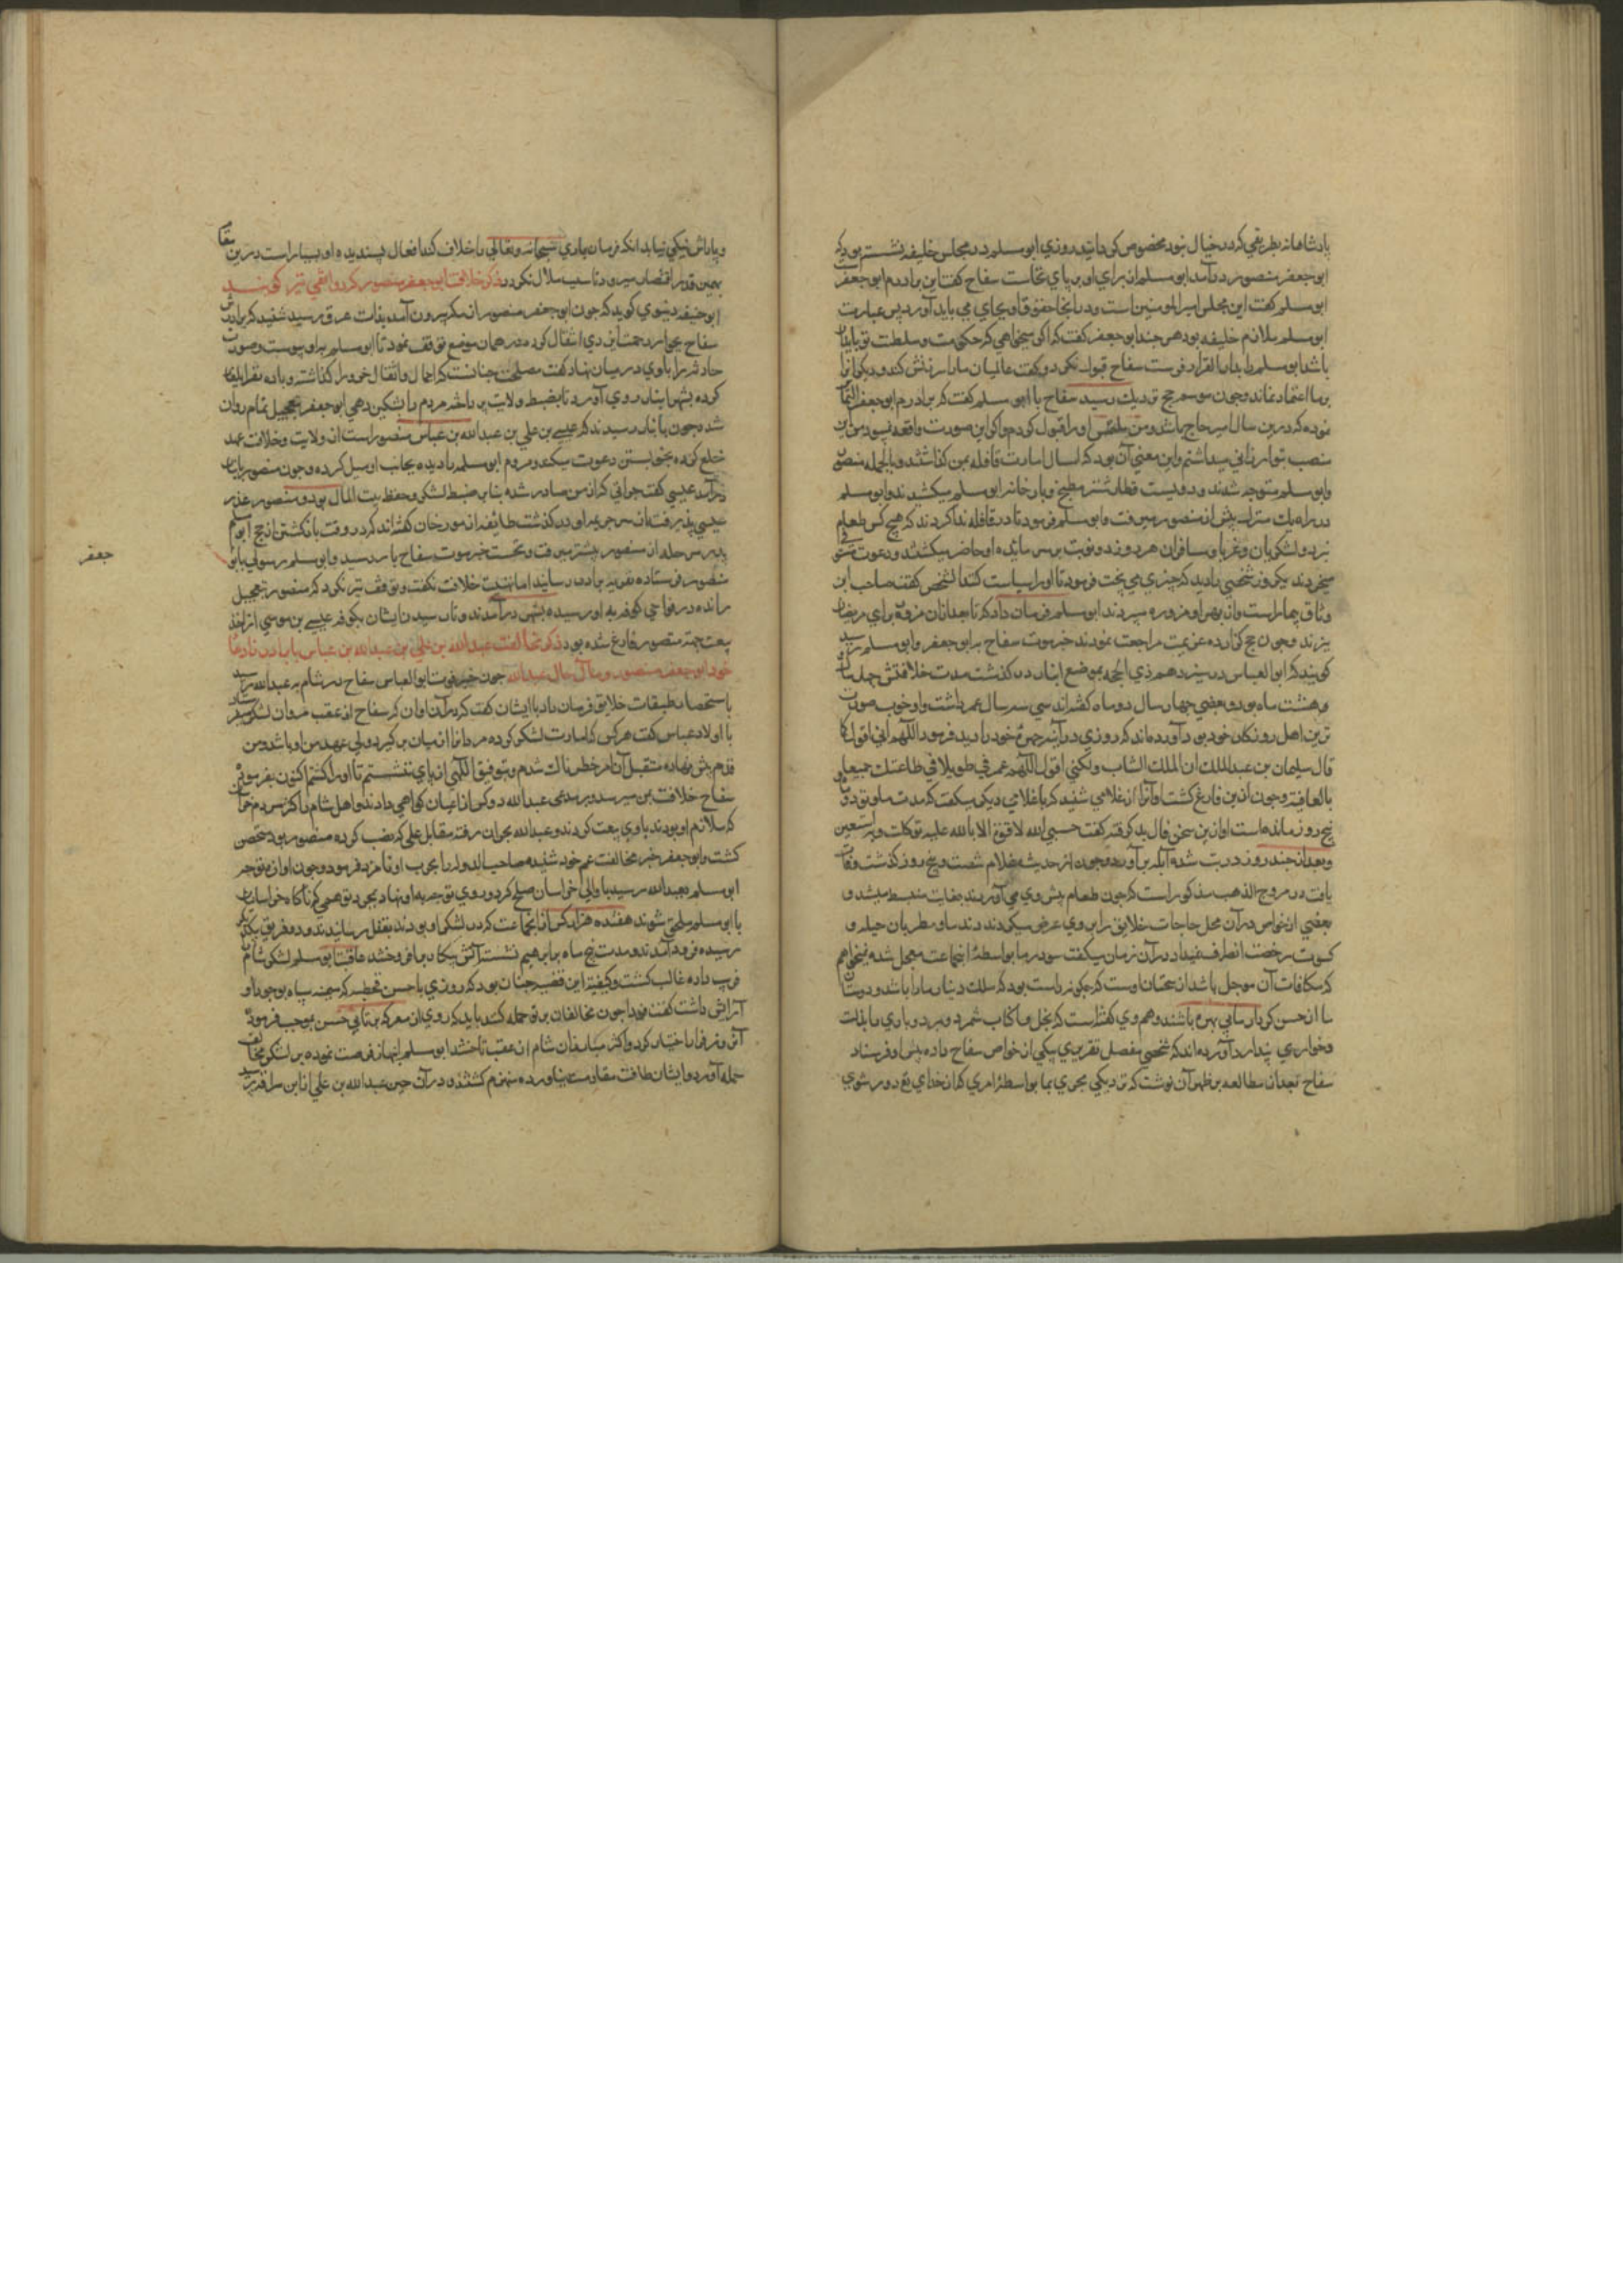 پادشاهانه بطریقی که در خیال نبود مخصوص گردانید و روزی ابو مسلم در مجلس خلیفه نشسته بود که
ابو جعفر منصور درآمد ابو مسلم از برای او بر پای نخاست سفاح گفت این برادرم ابو جعفر
ابو مسلم گفت این مجلس امیر المومنین است و در اینجا حقوق او بجای می باید آورد پس عبارت
ابو مسلم ملازم خلیفه بود هر چند ابو جعفر گفت که اگر میخواهی که حکومت و سلطنت تو پایدار
باشد ابو مسلم را بدار القرار فرست سفاح قبول نکرد و گفت عالمیان ما را سرزنش کنند و دیگر
بر ما اعتماد نماند و چون موسم حج نزدیک رسید سفاح با ابو مسلم گفت که برادرم ابو جعفر التماس
نموده که درین سال امیر حاج باشد و من ملتمس او را قبول کردم و اگر این صورت واقعه نبود من این
منصب بتو ارزانی میداشتم و این معنی آن بود که امسال امارت قافله بمن گذاشتند و بالجمله منصور
و ابو مسلم متوجه شدند و دویست قطار شتر مطبخ و بار خانه ابو مسلم میکشیدند و ابو مسلم
در راه یک منزل پیش از منصور میرفت و ابو مسلم فرمود تا در قافله ندا کردند که هیچ کس طعام
نپزد و لشکریان و غربا و مسافران هر روز دو نوبت بر سر مایده او حاضر میگشتند و دعوت
میخوردند یکروز شخصی را دید که چیزی می پخت فرمود تا او را سیاست کنند آن شخص گفت صاحب این
وثاق بیمار است و از بهر او مزوره می پزند ابو مسلم فرمان داد که تا بعد از آن مزوره برای مریضان
پزند و چون حج گزارده عزیمت مراجعت نمودند خبر موت سفاح به ابو جعفر و ابو مسلم رسید
گویند که ابو العباس در سیزدهم ذی الحجه بموضع انبار در گذشت مدت خلافتش چهار سال
و هشت ماه بود و بعضی چهار سال و دو ماه گفته اند سی و سه سال عمر داشت و او خوب صورت
ترین اهل روزگار خود بود آورده اند که روزی در آینه چهره خود را دید فرمود اللهم انی لا اقول کما
قال سلیمان بن عبد الملک انا الملک الشاب ولکنی اقول اللهم عمرنی طویلا فی طاعتک جمیعا
بالعافیه و چون ازین فارغ گشت آواز از غلامی شنید که با غلامی دیگر میگفت که مدت ما و تو دو ماه و
پنج روز مانده است او از این سخن فال بد گرفته گفت حسبی الله لا قوة الا بالله علیه توکلت و به استعین
و بعد از چند روز در تب شده آبله بر آورد و چون از حدیث غلام شصت و پنج روز گذشت وفات
یافت در مروج الذهب مذکور است که چون طعام پیش وی می آوردند بغایت منبسط میشد و
بعضی از خواص در آن محل حاجات خلایق را بر وی عرض میکردند و ندما و مطربان جمله و
کسوت رخصت انصراف نمیداد در آن زمان میگفت سرور ما بواسطه این جماعت معجل شده نمیخواهم
که مکافات آن موجل باشد از سخنان اوست که چگونه راست بود که ملک دینار ما را باشد و دوستان
ما از حسن کردار ما بی بهره باشند و هم وی گفته است که بخل
و خواری پندارد آورده اند که شخصی مفصل تقریری یکی از خواص سفاح داده پیش او فرستاد
سفاح بعد از مطالعه بر ظهر آن نوشت که نزدیکی مجوی بما بواسطه امری که از خدای تع دور شوی
و پاداش نیکی نیابد آنکه فرمان باری سبحانه و تعالی را خلاف کند افعال پسندیده او بسیار است درین مقام
بهمین قدر اقتصار میرود تا سبب ملال نگردد ذکر خلافت ابو جعفر منصور
ابو حنیفه دینوری گوید که چون ابو جعفر منصور از مکه بیرون آمد بذات عرق رسید شنید که برادرش
سفاح بجوار رحمت ایزدی انتقال کرده در همان موضع توقف نمود تا ابو مسلم به او پیوست و صورت
حادثه را با وی در میان نهاد گفت مصلحت چنانست که احمال و اثقال خود را گذاشته
کرده بشهر انبار روی آورد تا بضبط ولایت پردازد مردم را تسکین دهی ابو جعفر بتعجیل تمام روان
شده چون بانبار رسید ند که عیسی بن علی بن عبد الله بن عباس منصور است از ولایت و خلافت عهد
خلع کرده بخویشتن دعوت میکند مردم ابو مسلم را دیده بجانب او میل کرده و چون منصور بانبار
درآمد عیسی گفت جراتی که از من صادر شده بنا بر ضبط لشکر و حفظ بیت المال بود و منصور عذر
عیسی پذیرفت از سر جریمه او در گذشت طایفه از مورخان گفته اند که در وقت بازگشتن از حج ابو مسلم
یک مرحله از منصور پیشتر میرفت و نخست خبر موت سفاح باو رسید و ابو مسلم رسولی با ابو
جعفر
منصور فرستاده تعزیه برادر رسانید اما تهنیت خلافت نگفت و توقف نیز نکرد که منصور بتعجیل
رانده در نواحی کوفه به او رسیده بشهر درآمدند و تا رسیدن ایشان بکوفه عیسی بن موسی از اخذ
بیعت جهة منصور فارغ شده بود ذکر مخالفت عبد الله بن علی بن عبد الله بن عباس با برادر زاده
خود ابو جعفر منصور و مآل حال عبد الله چون خبر فوت ابو العباس سفاح در شام به عبد الله رسید
باستحضار طبقات خلایق فرمان داد با ایشان گفت که در آن اوان که سفاح از عقب مروان لشکر میفرستاد
با اولاد عباس گفت هر کس که امارت لشکر کرده مروان را از میان برگیرد ولی عهد من او باشد و من
قدم پیش نهاده متقبل آن امر خطرناک شدم و بتوفیق الهی از پای ننشستم تا او را کشتم اکنون بفرموده
سفاح خلافت بمن میرسد و بر مدعی عبد الله دو کس از اعیان گواهی دادند و اهل شام و اکثر مردم
که ملازم او بودند باوی بیعت کردند و عبد الله بحران رفته مقاتل عکی که نصب کرده منصور بود متحصن
گشت و ابو جعفر خبر مخالفت عم خود شنیده صاحب الدوله را بحرب او نامزد فرمود و چون آوازه توجه
ابو مسلم بعبد الله رسید با والی خراسان صلح کرد و روی توجه به او نهاد بمجرد توهمی که ناگاه خراسانیان
با ابو مسلم ملحق شوند هفده هزار کس از آن جماعت که در لشکر او بودند بقتل رسانیدند و دو فریق بیکدیگر
رسیده فرود آمدند و مدت پنج ماه برابر هم نشسته آتش پیکار برافروختند عاقبت ابو مسلم لشکر شام
فریب داده غالب گشت و کیفیت این قضیه چنان بود که روزی با حسن قحطبه که میمنه سپاه بوجود او
آرایش داشت گفت فردا چون مخالفان بر تو حمله کنند باید که روی از معرکه بر تابی حسن بموجب فرموده
آن روز فرار اختیار کرد و اکثر مبارزان شام از عقب تاختند ابو مسلم انتهاز فرصت نموده بر لشکر مخالف
حمله آورد و ایشان طاقت مقاومت نیاورده منهزم گشتند و در آن حین عبد الله بن علی از ابن سراقه پرسید